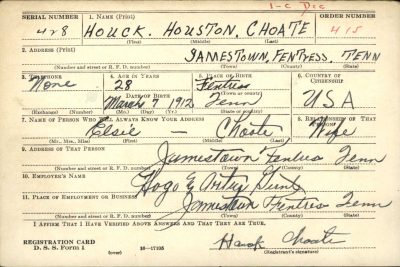 1-C Dec
SERIAL NUMBER 1. NAME (Print) ORDER NUMBER
428 HOUCK. HOUSTON, CHOATE 415
(First) (Middle) (Last)
2. ADDRESS (Print)
JAMESTOWN, FENTRESS, TENN
(Number and street or R. F. D. number) (Town) (County) (State)
3. TELEPHONE 4. AGE IN YEARS 5. PLACE OF BIRTH 6. COUNTRY OF CITIZENSHIP
None 28 Fentress
DATE OF BIRTH (Town or county)
March 7 1912 Tenn USA
(Exchange) (Number) (Mo.) (Day) (Yr.) (State or country)
7. NAME OF PERSON WHO WILL ALWAYS KNOW YOUR ADDRESS 8. RELATIONSHIP OF THAT PERSON
Elsie — Choate Wife
(Mr., Mrs., Miss) (First) (Middle) (Last)
9. ADDRESS OF THAT PERSON
Jamestown Fentress Tenn
(Number and street or R. F. D. number) (Town) (County) (State)
10. EMPLOYER'S NAME
Hogo E
11. PLACE OF EMPLOYMENT OR BUSINESS
Jamestown Fentress Tenn
(Number and street or R. F. D. number) (Town) (County) (State)
I AFFIRM THAT I HAVE VERIFIED ABOVE ANSWERS AND THAT THEY ARE TRUE.
REGISTRATION CARD
D. S. S. Form 1 (over) 16—17105 Houck Choate
(Registrant's signature)